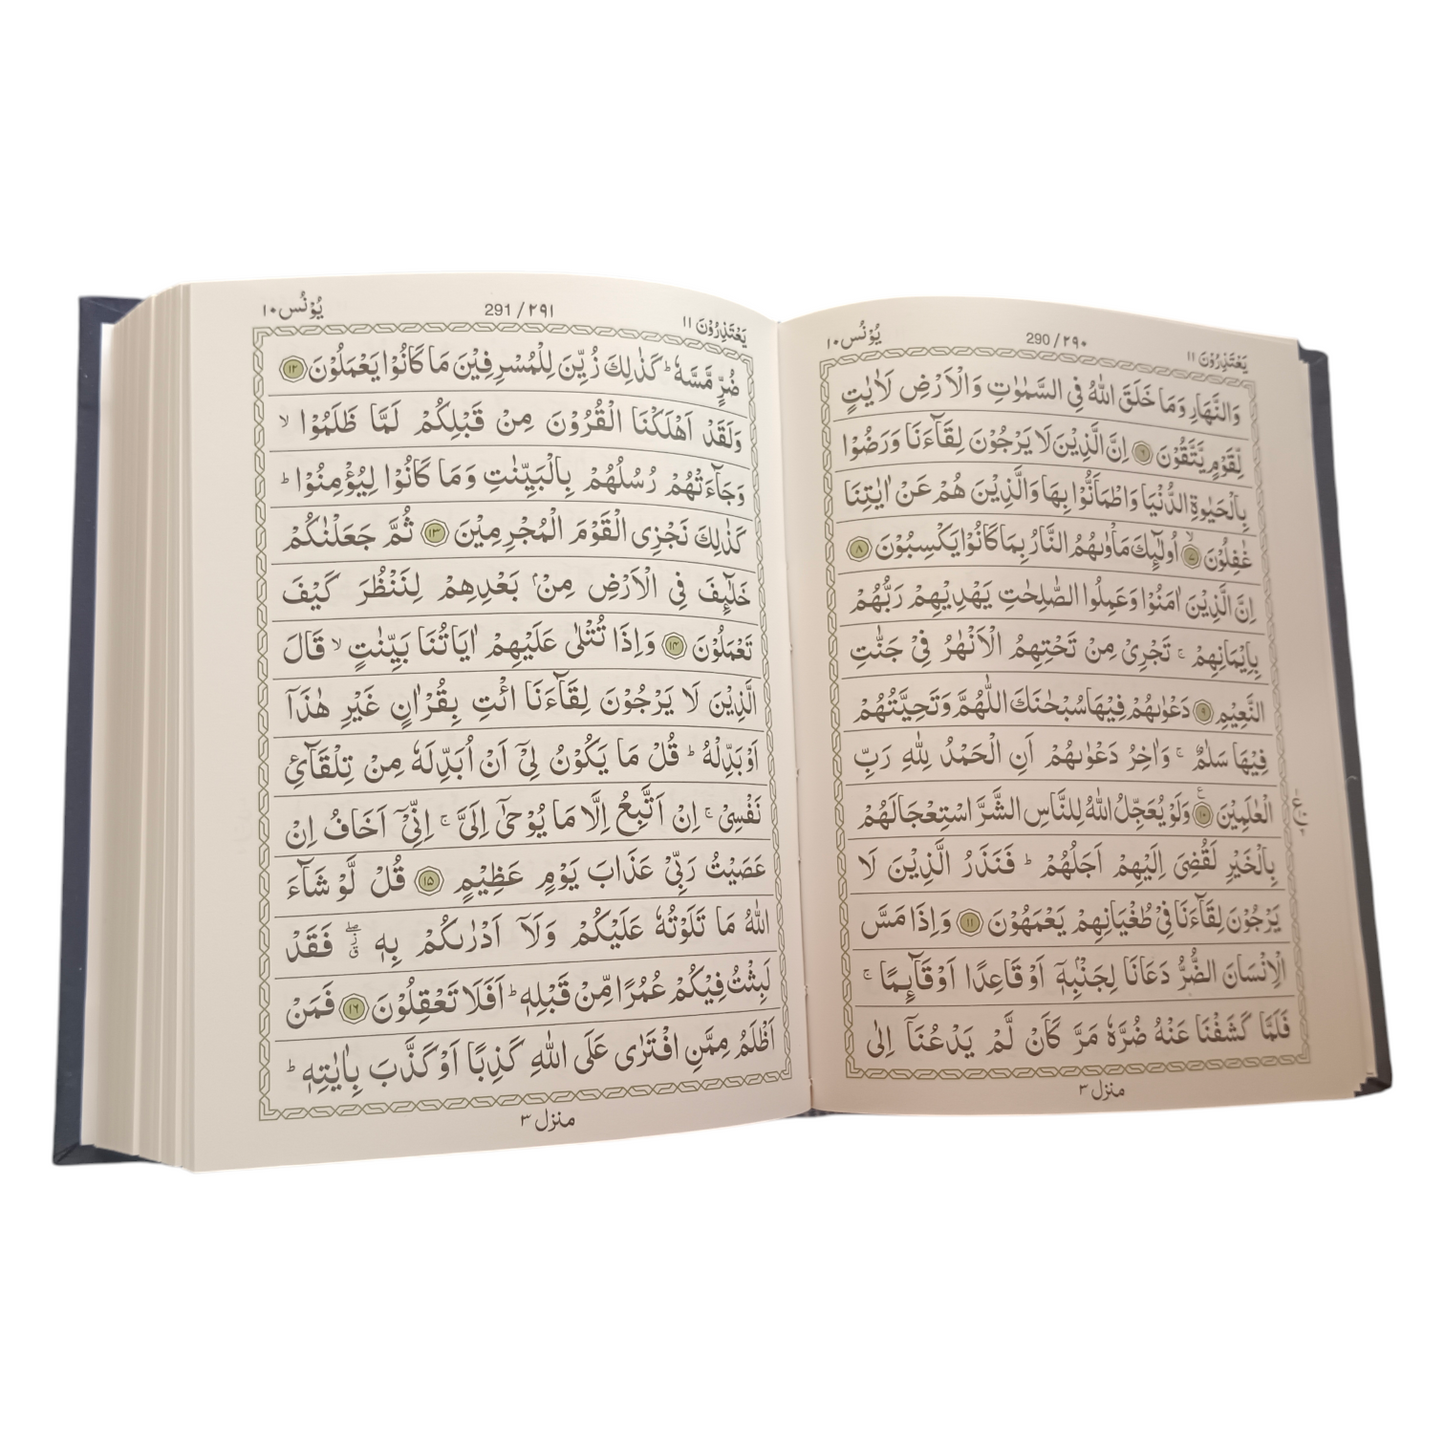 يَعْتَذِرُوْنَ ١١
290 / ٢٩٠
يُوْنُس ١٠
وَالنَّهَارِ وَمَا خَلَقَ اللّٰهُ فِى السَّمٰوٰتِ وَالْاَرْضِ لَاٰيٰتٍ
لِّقَوْمٍ يَّتَّقُوْنَ ٦ اِنَّ الَّذِيْنَ لَا يَرْجُوْنَ لِقَآءَنَا وَرَضُوْا
بِالْحَيٰوةِ الدُّنْيَا وَاطْمَاَنُّوْا بِهَا وَالَّذِيْنَ هُمْ عَنْ اٰيٰتِنَا
غٰفِلُوْنَ ٧ اُولٰٓئِكَ مَاْوٰىهُمُ النَّارُ بِمَا كَانُوْا يَكْسِبُوْنَ ٨
اِنَّ الَّذِيْنَ اٰمَنُوْا وَعَمِلُوا الصّٰلِحٰتِ يَهْدِيْهِمْ رَبُّهُمْ
بِاِيْمَانِهِمْ ۚ تَجْرِىْ مِنْ تَحْتِهِمُ الْاَنْهٰرُ فِىْ جَنّٰتِ
النَّعِيْمِ ٩ دَعْوٰىهُمْ فِيْهَا سُبْحٰنَكَ اللّٰهُمَّ وَتَحِيَّتُهُمْ
فِيْهَا سَلٰمٌ ۚ وَاٰخِرُ دَعْوٰىهُمْ اَنِ الْحَمْدُ لِلّٰهِ رَبِّ
الْعٰلَمِيْنَ ١٠ وَلَوْ يُعَجِّلُ اللّٰهُ لِلنَّاسِ الشَّرَّ اسْتِعْجَالَهُمْ
بِالْخَيْرِ لَقُضِىَ اِلَيْهِمْ اَجَلُهُمْ ؕ فَنَذَرُ الَّذِيْنَ لَا
يَرْجُوْنَ لِقَآءَنَا فِىْ طُغْيَانِهِمْ يَعْمَهُوْنَ ١١ وَاِذَا مَسَّ
الْاِنْسَانَ الضُّرُّ دَعَانَا لِجَنْۢبِهٖۤ اَوْ قَاعِدًا اَوْ قَآئِمًا ۚ
فَلَمَّا كَشَفْنَا عَنْهُ ضُرَّهٗ مَرَّ كَاَنْ لَّمْ يَدْعُنَاۤ اِلٰى
منزل ٣
يَعْتَذِرُوْنَ ١١
291 / ٢٩١
يُوْنُس ١٠
ضُرٍّ مَّسَّهٗ ؕ كَذٰلِكَ زُيِّنَ لِلْمُسْرِفِيْنَ مَا كَانُوْا يَعْمَلُوْنَ ١٢
وَلَقَدْ اَهْلَكْنَا الْقُرُوْنَ مِنْ قَبْلِكُمْ لَمَّا ظَلَمُوْا ۙ
وَجَآءَتْهُمْ رُسُلُهُمْ بِالْبَيِّنٰتِ وَمَا كَانُوْا لِيُؤْمِنُوْا ؕ
كَذٰلِكَ نَجْزِى الْقَوْمَ الْمُجْرِمِيْنَ ١٣ ثُمَّ جَعَلْنٰكُمْ
خَلٰٓئِفَ فِى الْاَرْضِ مِنْۢ بَعْدِهِمْ لِنَنْظُرَ كَيْفَ
تَعْمَلُوْنَ ١٤ وَاِذَا تُتْلٰى عَلَيْهِمْ اٰيَاتُنَا بَيِّنٰتٍ ۙ قَالَ
الَّذِيْنَ لَا يَرْجُوْنَ لِقَآءَنَا ائْتِ بِقُرْاٰنٍ غَيْرِ هٰذَاۤ
اَوْ بَدِّلْهُ ؕ قُلْ مَا يَكُوْنُ لِىْۤ اَنْ اُبَدِّلَهٗ مِنْ تِلْقَآئِ
نَفْسِىْ ۚ اِنْ اَتَّبِعُ اِلَّا مَا يُوْحٰۤى اِلَىَّ ۚ اِنِّىْۤ اَخَافُ اِنْ
عَصَيْتُ رَبِّىْ عَذَابَ يَوْمٍ عَظِيْمٍ ١٥ قُلْ لَّوْ شَآءَ
اللّٰهُ مَا تَلَوْتُهٗ عَلَيْكُمْ وَلَاۤ اَدْرٰىكُمْ بِهٖ ۖ فَقَدْ
لَبِثْتُ فِيْكُمْ عُمُرًا مِّنْ قَبْلِهٖ ؕ اَفَلَا تَعْقِلُوْنَ ١٦ فَمَنْ
اَظْلَمُ مِمَّنِ افْتَرٰى عَلَى اللّٰهِ كَذِبًا اَوْ كَذَّبَ بِاٰيٰتِهٖ ؕ
منزل ٣